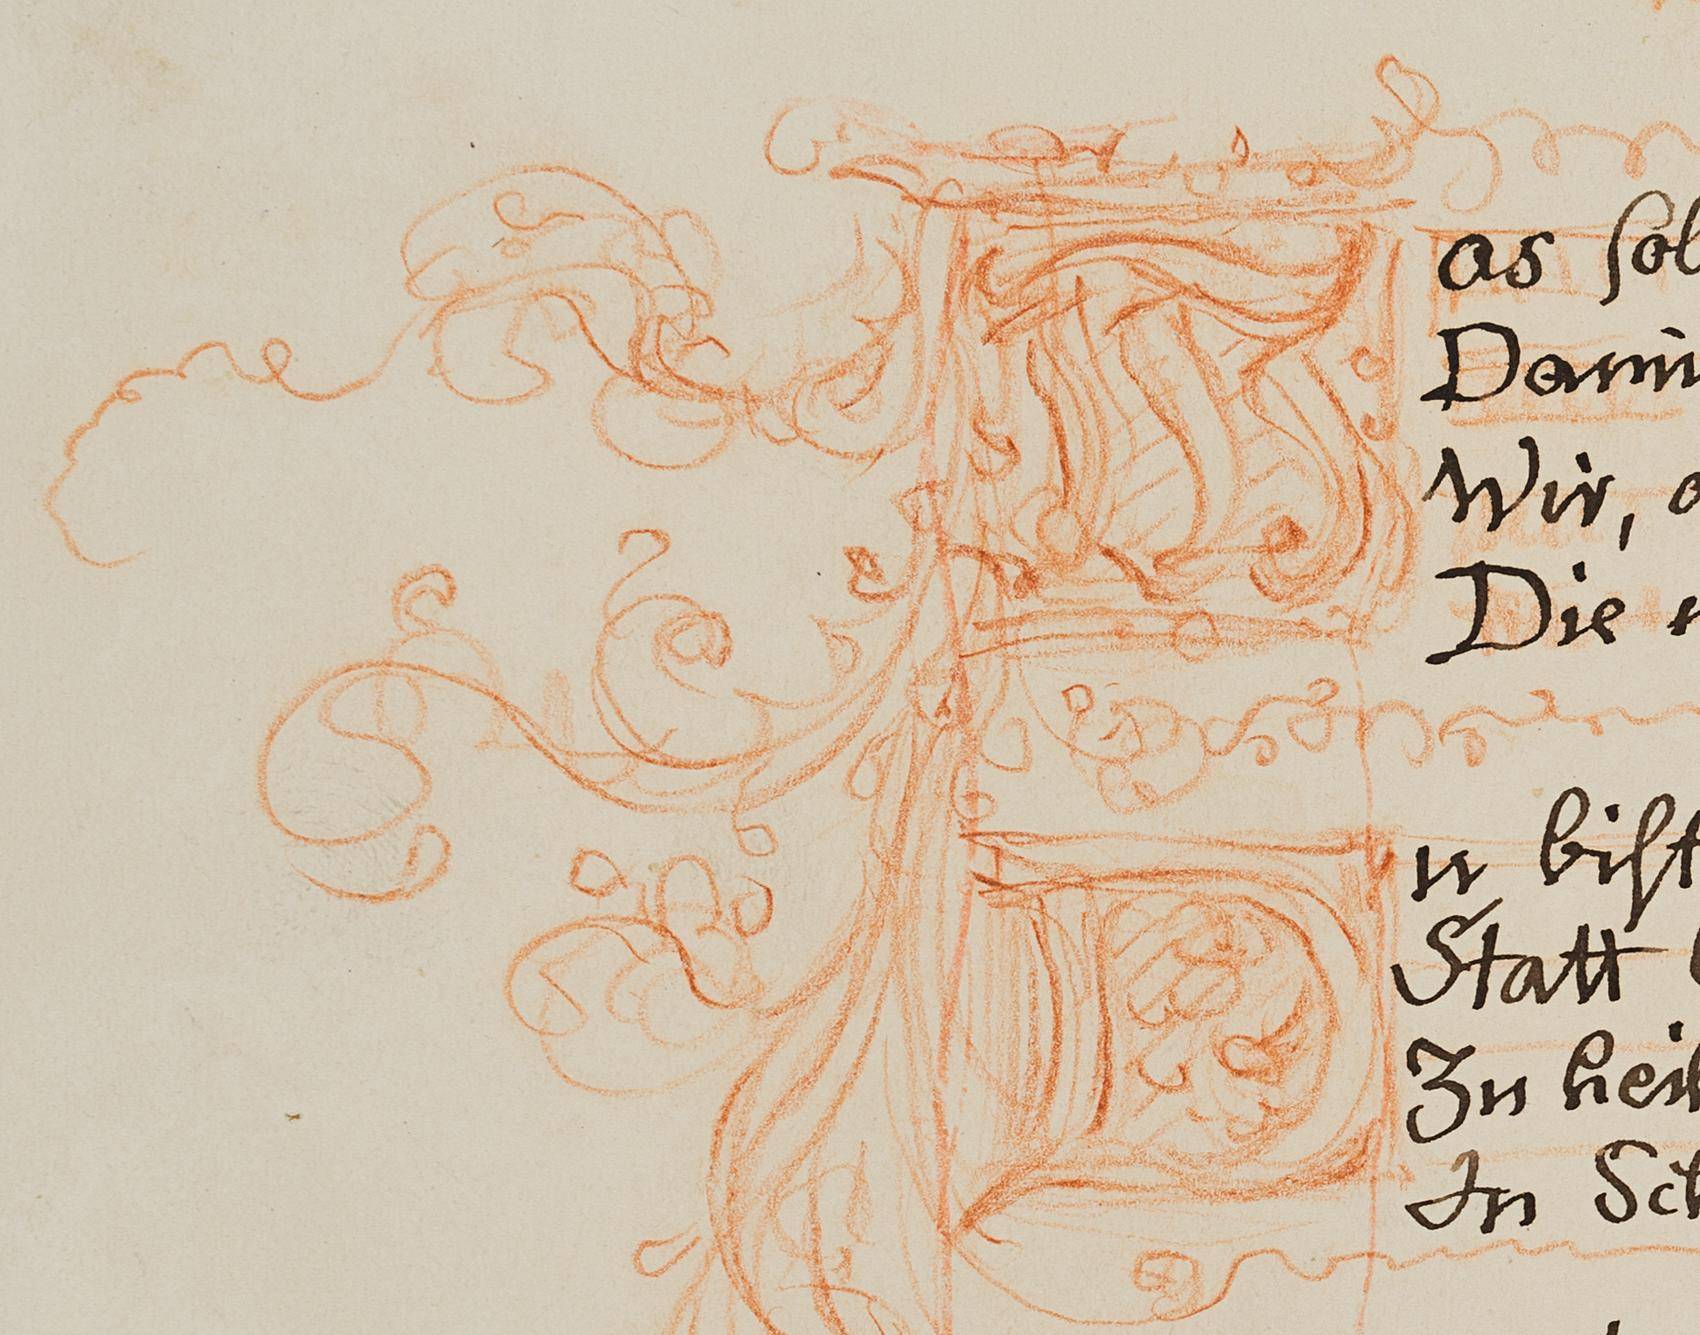 Was sol
Damit
Wir,
Die
Du bist
Statt
Zu heil
In Sch